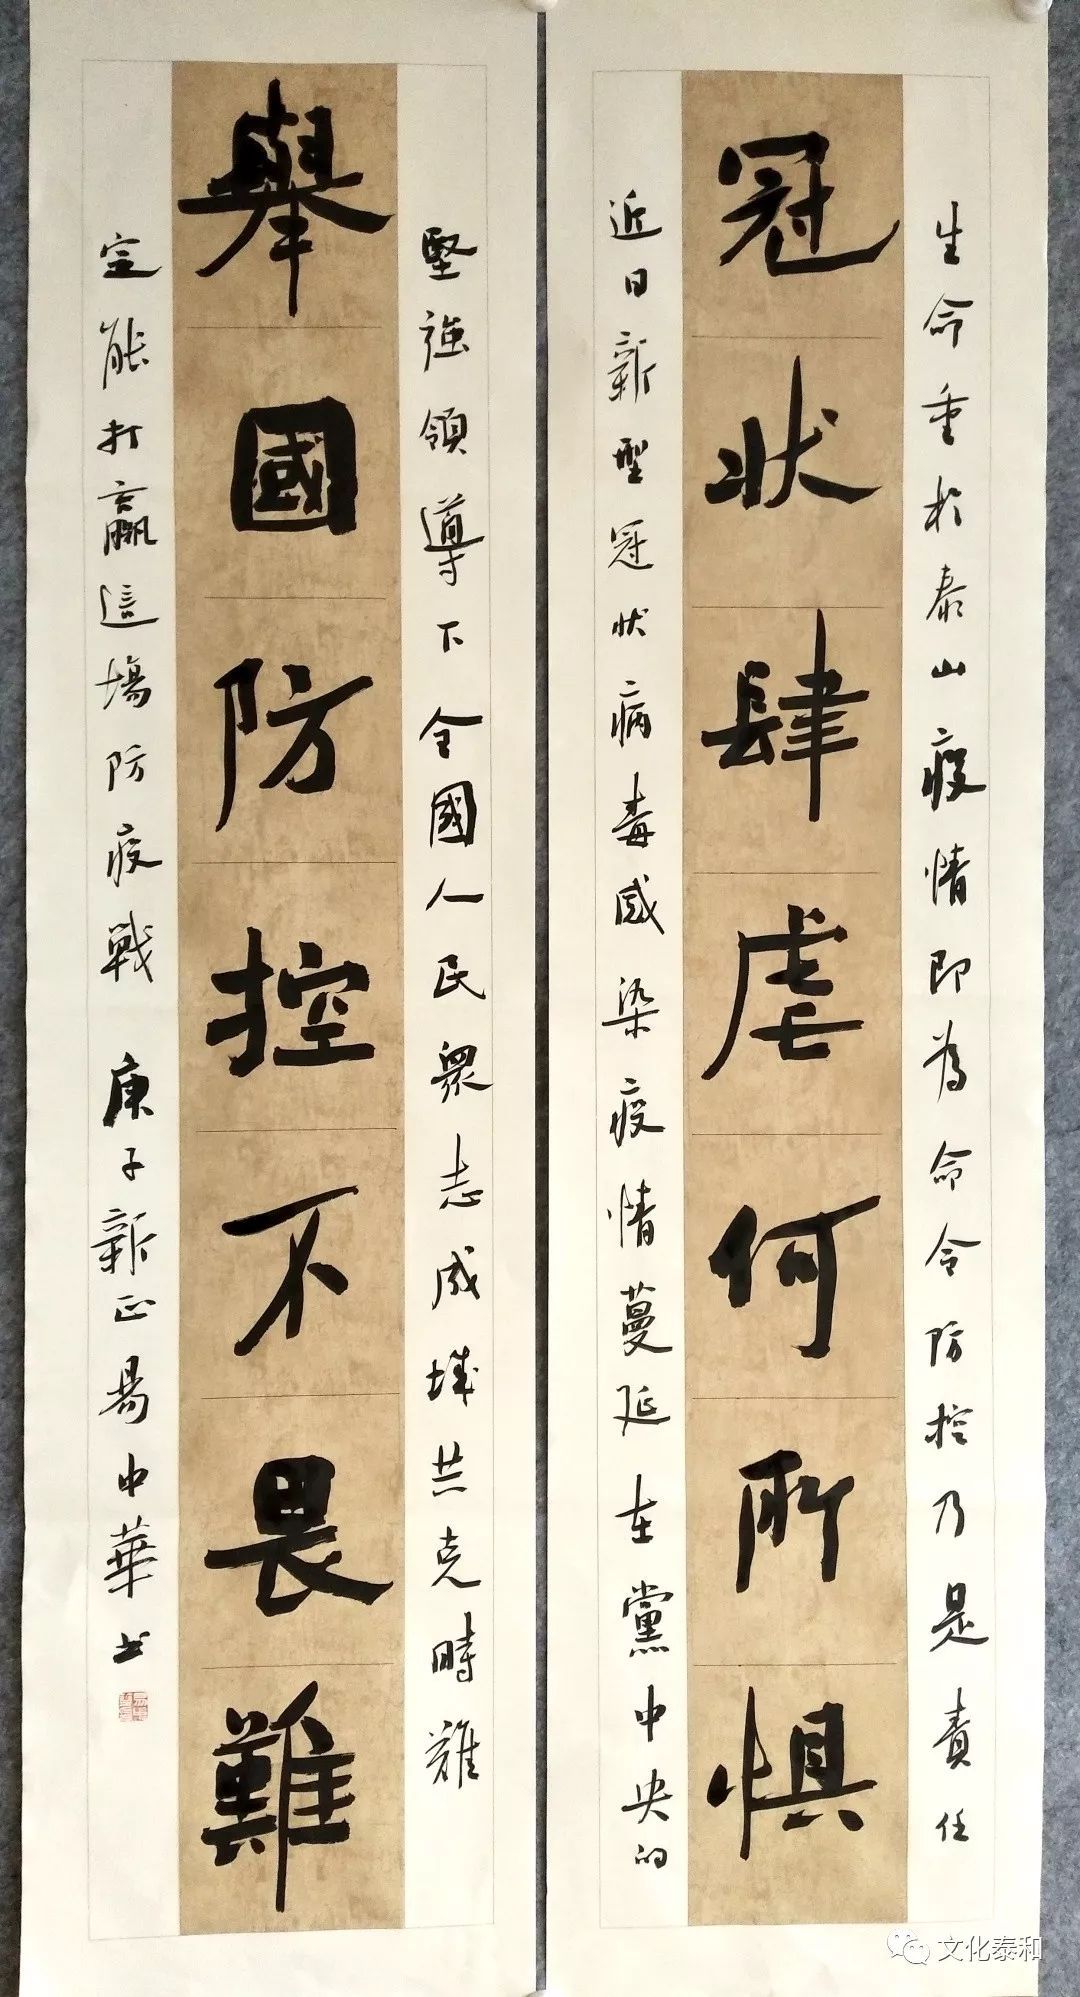 生命重於泰山疫情即為命令防控乃是責任
冠狀肆虐何所惧
近日新型冠狀病毒感染疫情蔓延在黨中央的
堅強領導下全國人民眾志成城共克時難
舉國防控不畏難
定能打贏這場防疫戰 庚子新正易中華书
文化泰和